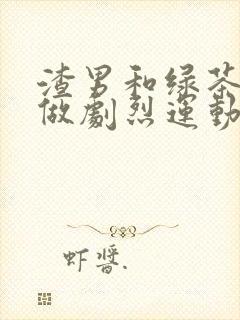 渣男和绿茶
做劇烈運動
虾醬.